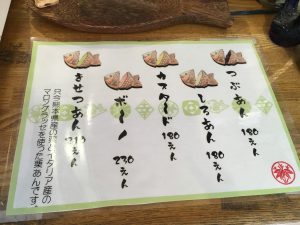 つぶあん 180えん
しろあん 180えん
カスタード 180えん
ボーノ 230えん
きせつあん
只今熊本県産の栗とイタリア産の
マロングラッセを使った栗あんです。